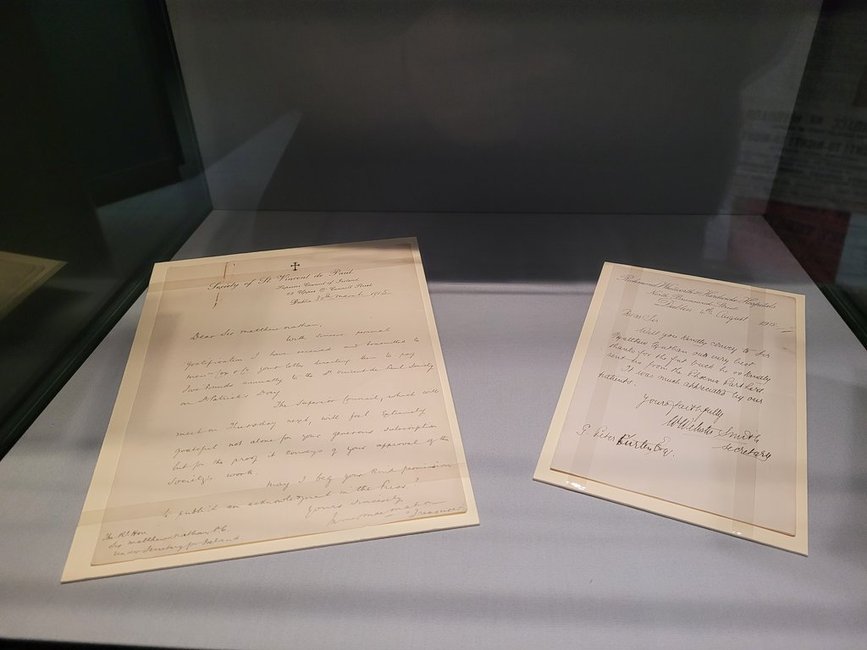 Society of St Vincent de Paul
Superior Council of Ireland
Dublin
Dear Sir Matthew Nathan,
With sincere personal
gratification I have received and transmitted to
your letter
two pounds annually to the St Vincent de Paul Society
on St Patrick's Day
The Superior Council, which will
meet on Thursday next, will feel extremely
grateful not alone for your generous subscription
but for the proof it conveys of your approval of the
Society's work.
May I beg your kind permission
to publish an acknowledgment in the Press?
Yours sincerely
Treasurer
The Rt Hon
Sir Matthew Nathan, P.C.
Under Secretary for Ireland
Richmond, Whitworth & Hardwicke Hospitals
North Brunswick Street
Dublin August 1915
Dear Sir
Will you kindly convey to Sir
Matthew Nathan our very best
thanks for the fat buck he so kindly
sent us from the Phoenix Park herd
It was much appreciated by our
patients.
Yours faithfully
Smith
Secretary
Esq.